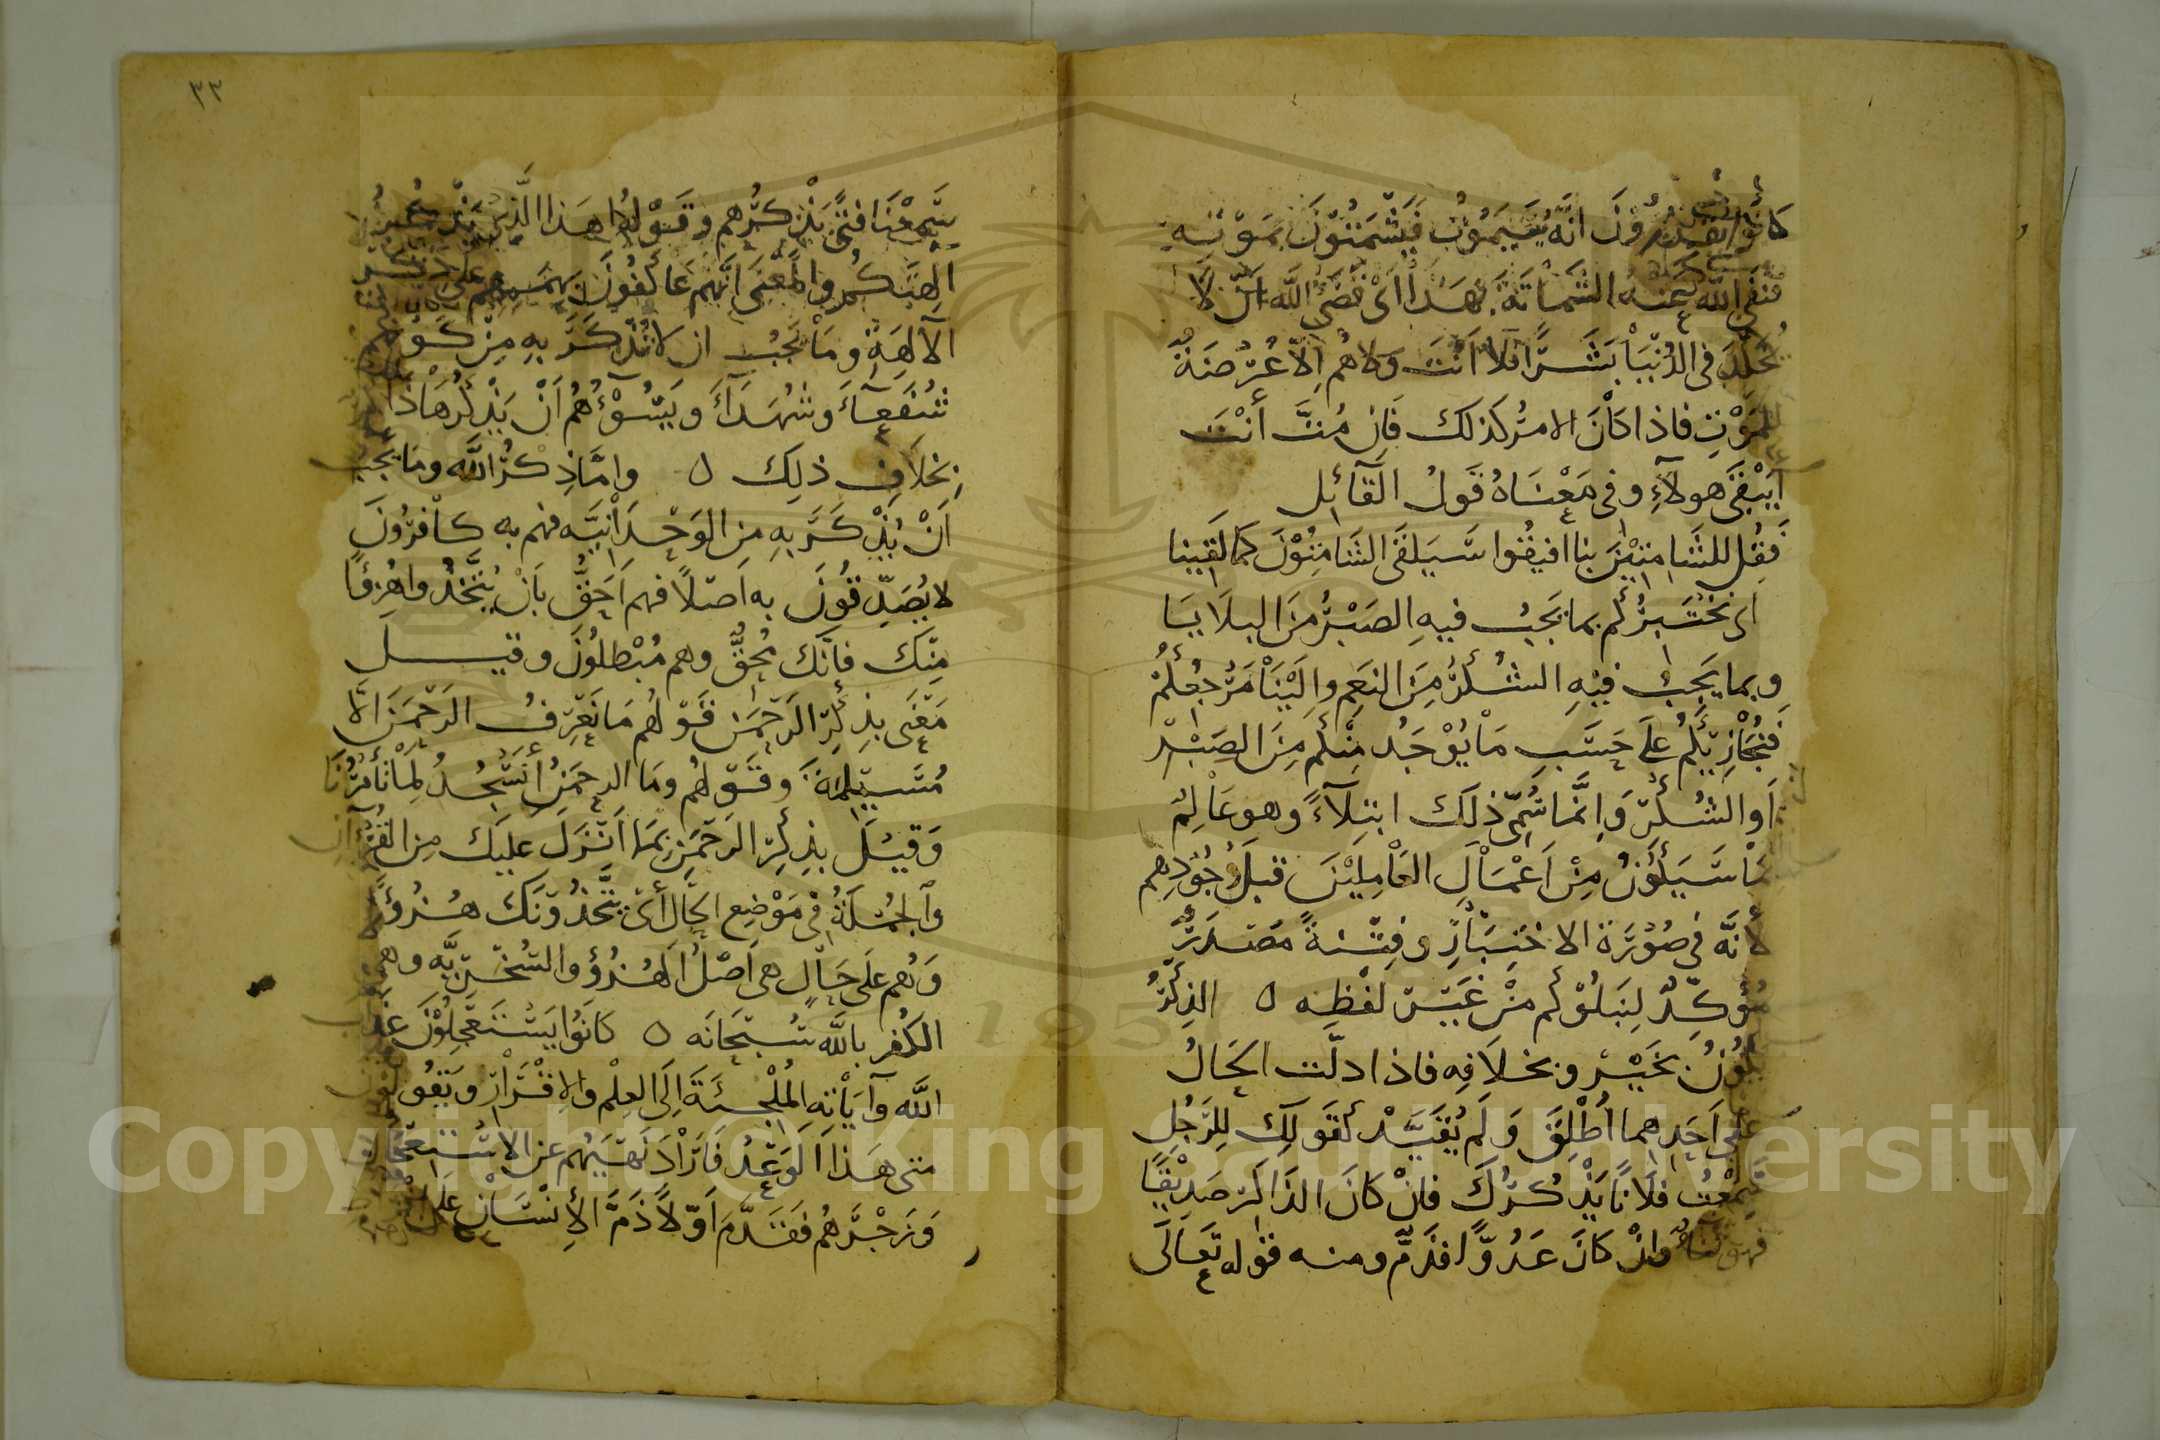 كانوا يقدرون أنه سيموت فيشمتون بموته
فنفى الله عنه الشماتة بهذا أي قضى الله أن لا
يخلد في الدنيا بشرًا فلا أنت ولا هم إلا عُرضة
للموت فاذا كان الامر كذلك فإن مت أنت
أيبقى هولاء وفي معناه قول القائل
فقل للشامتين بنا افيقوا سيلقى الشامتون كما لقينا
أي نختبركم بما يجب فيه الصبر من البلايا
وبما يجب فيه الشكر من النعم وإلينا مرجعكم
فنجازيكم على حسب ما يوجد منكم من الصبر
أو الشكر وإنما سمي ذلك ابتلاءً وهو عالم
بما سيكون من أعمال العاملين قبل وجودهم
لأنه في صورة الاختبار و فتنةً مصدر
مؤكد لنبلوكم من غير لفظه ه الذكر
يكون بخير وبخلافه فاذا دلت الحال
على أحدهما أطلق ولم يقيد كقولك للرجل
سمعت فلانًا يذكرك فان كان الذاكر صديقًا
فهو ثناء وإن كان عدوًا فذم ومنه قوله تعالى
٣٣
سمعنا فتى يذكرهم وقوله اهذا الذي يذكر
آلهتكم والمعنى انهم عاكفون بهممهم على ذكر
الآلهة وما يجب ان لا تذكر به من كونهم
شفعآء وشهدآء ويسوءهم أن يذكرها ذاكر
بخلاف ذلك ه واما ذكر الله وما يجب
أن يذكر به من الوحدانية فهم به كافرون
لا يصدقون به أصلًا فهم أحق بأن يتخذوا هزؤًا
منك فإنك محق وهم مبطلون وقيل
معنى بذكر الرحمن قولهم ما نعرف الرحمن الا
مسيلمة وقولهم وما الرحمن أنسجد لما تأمرنا
وقيل بذكر الرحمن بما أنزل عليك من القرآن
والجملة في موضع الحال أي يتخذونك هزؤًا
وهم على حال هي أصل الهزؤ والسخرية وهي
الكفر بالله سبحانه ه كانوا يستعجلون عذاب
الله وآياته الملجئة إلى العلم والاقرار ويقولون
متى هذا الوعد فأراد نهيهم عن الاستعجال
وزجرهم فقدم أولًا ذم الإنسان على